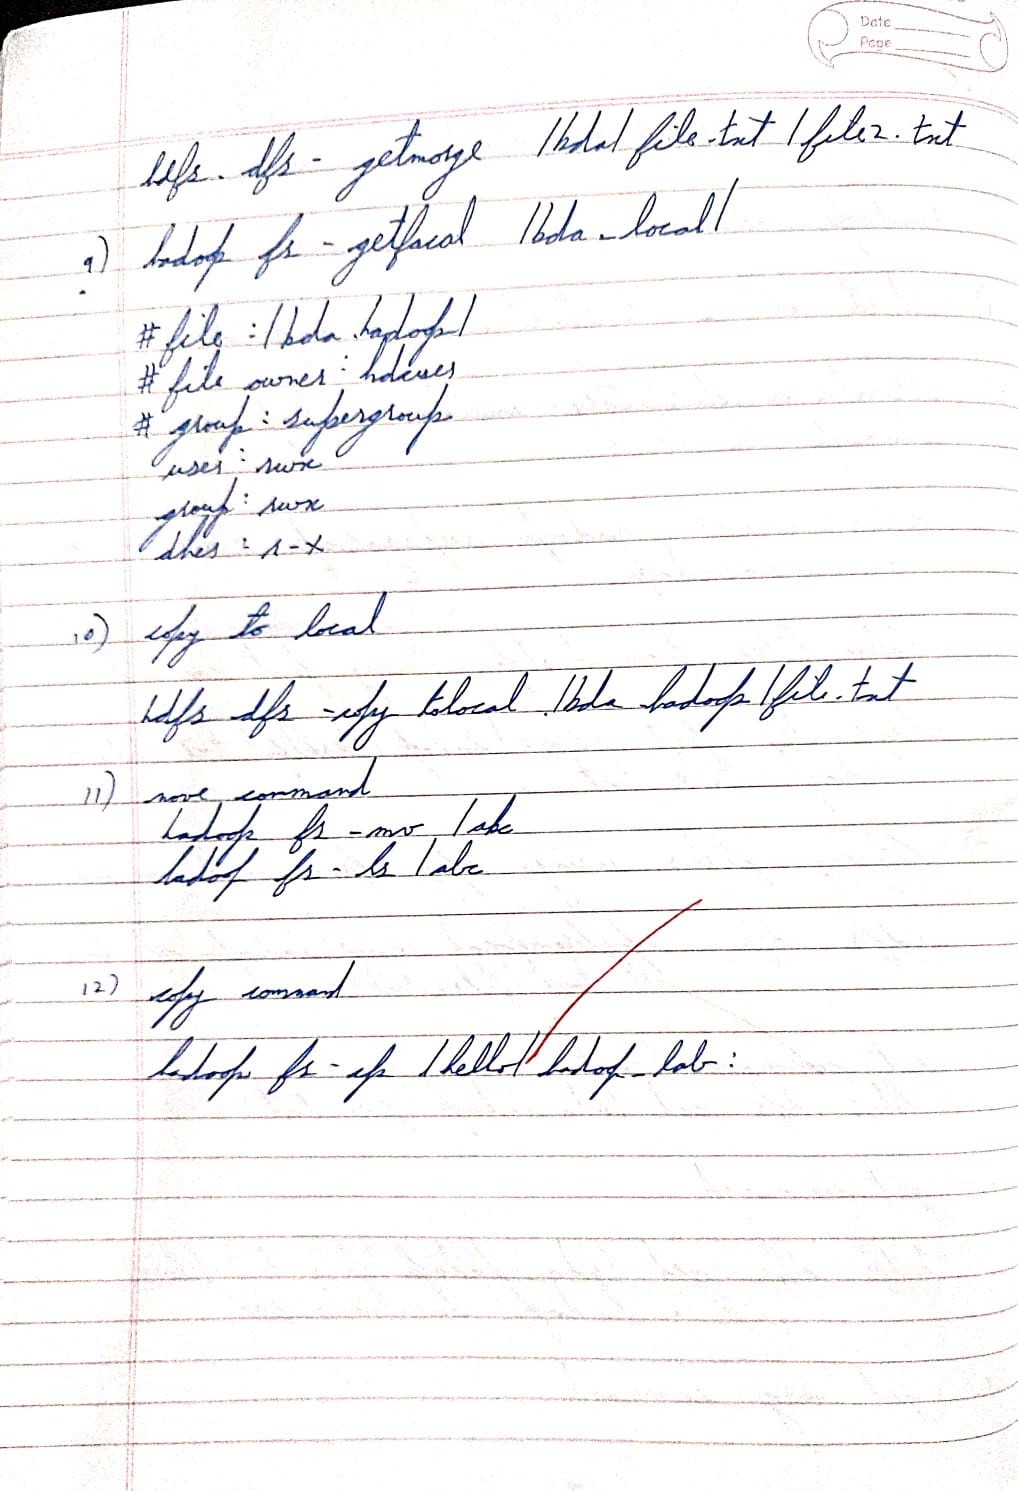 Date
Page
hdfs. dfs - getmorge /bda/ file.txt /file2.txt
9) hadoop fs - getfacal /bda_local/
# file : /bda.hadoop/
# file owner : hdcuser
# group : supergroup
user : rwx
group : rwx
other : r-x
10) copy to local
hdfs dfs -copy tolocal /bda hadoop /file.txt
11) move command
hadoop fs -mv /abc
hadoop fs - ls /abc
12) copy command
hadoop fs - cp /hello/ hadoop_lab :